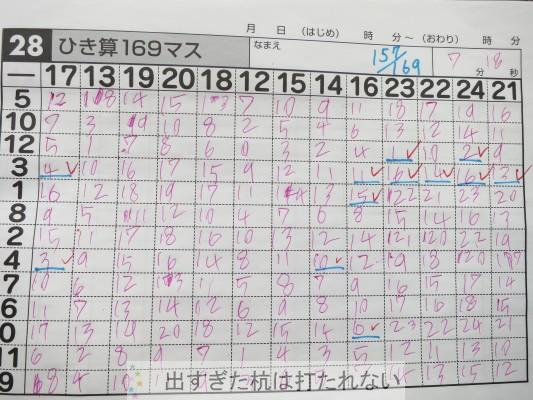 月 日 (はじめ) 時 分〜(おわり) 時 分
28 ひき算169マス なまえ 157/169 7分 18秒
— 17 13 19 20 18 12 15 14 16 23 22 24 21
5 12 18 14 15 13 7 10 9 11 18 17 19 16
10 7 3 9 10 8 2 5 4 6 13 12 14 11
12 5 1 7 8 6 0 3 2 4 1 10 2 9
3 4 10 16 17 15 9 12 11 11 16 14 16 13
1 16 12 18 19 17 11 14 13 15 22 21 23 20
8 9 5 11 12 10 4 7 6 8 15 14 16 13
2 15 11 17 18 16 10 13 12 14 21 20 22 19
4 3 9 15 16 14 8 11 0 12 19 18 20 17
7 10 6 12 13 11 5 8 7 9 16 15 17 14
6 11 7 13 14 12 6 9 8 10 17 16 18 15
0 17 13 19 20 18 12 15 14 6 23 22 24 21
11 6 2 8 9 7 1 4 3 5 12 11 13 10
9 8 4 10 13 15 12
出すぎた杭は打たれない